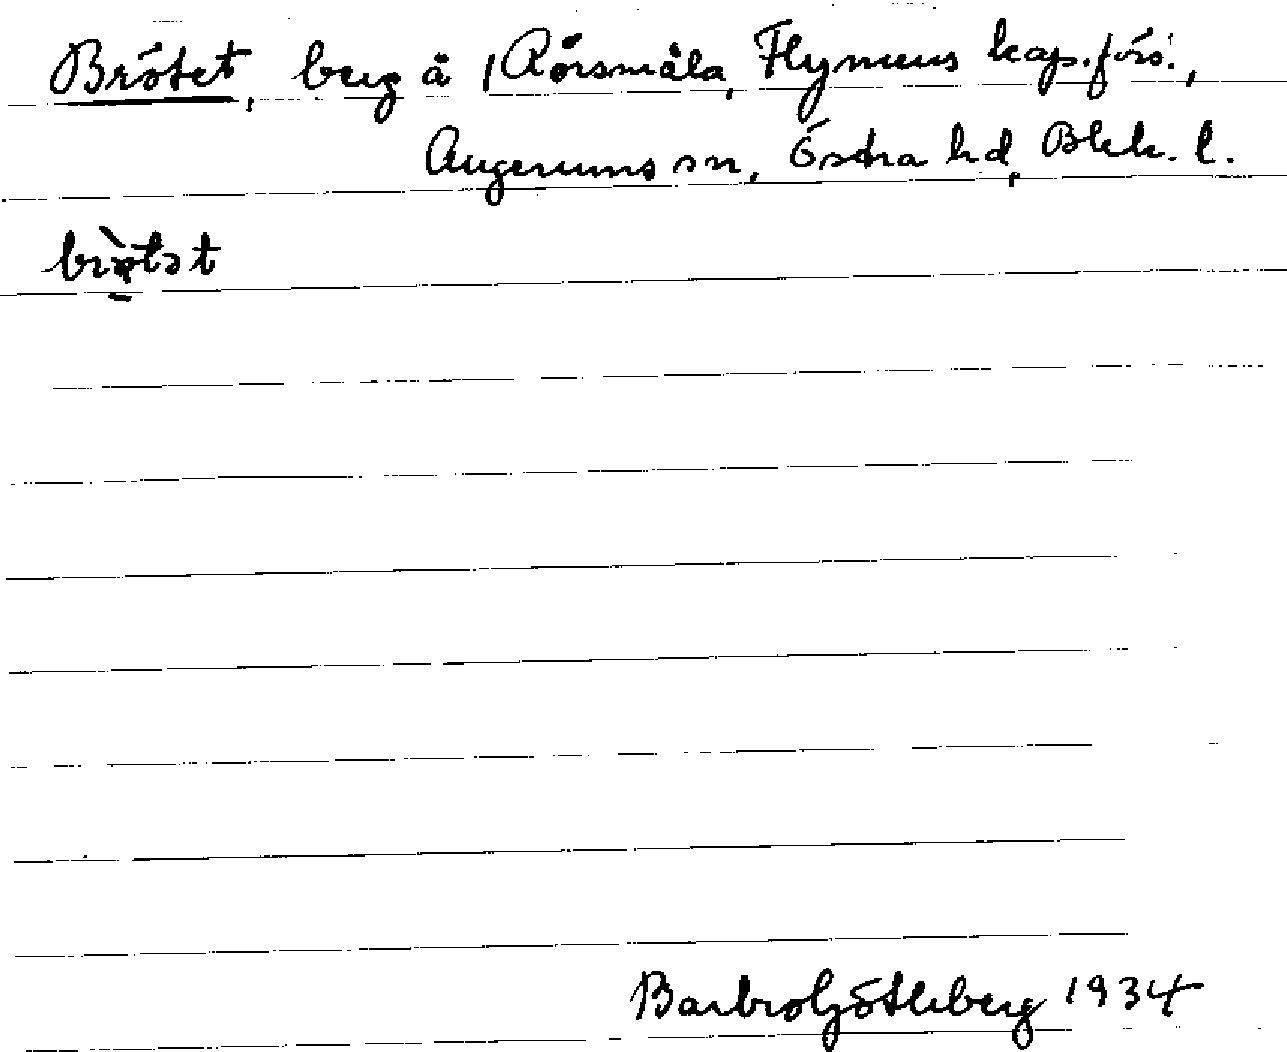 Brötet, berg å 1 Rörsmåla, Flymens kap.förs.,
Augerums sn, Östra hd, Blek. l.
Barbro Götleberg 1934